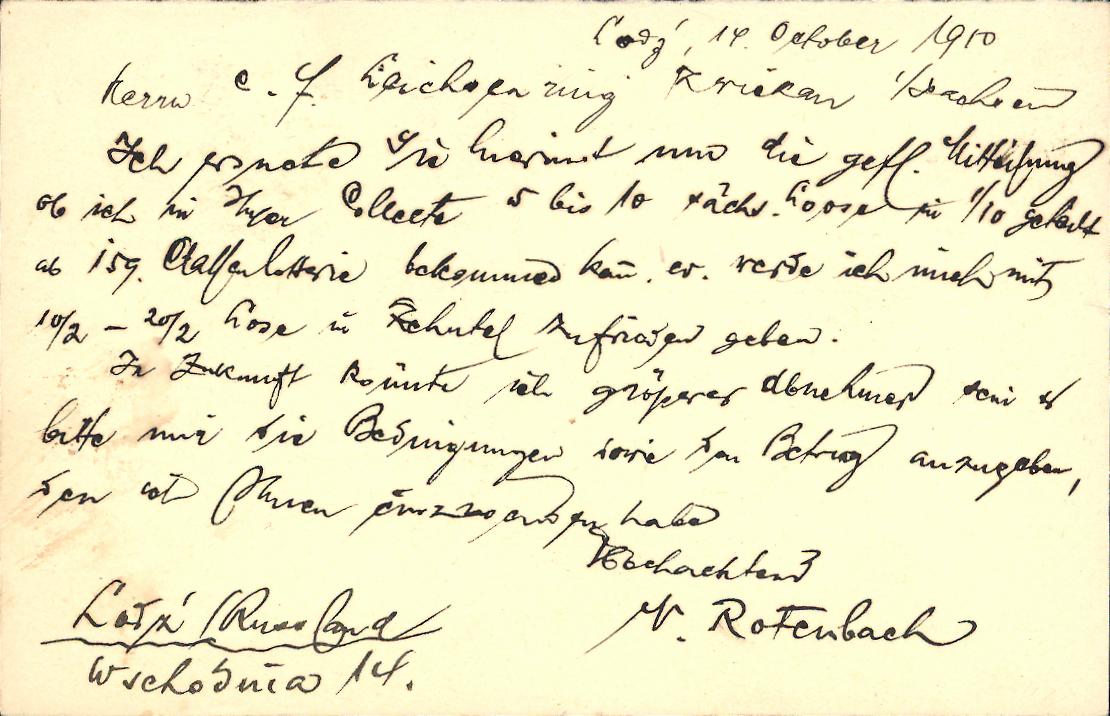 Lodz, 14. October 1910
Herrn C. F. Leichsenring Zwickau i/Sachsen
Ich ersuche Sie hiermit um die gefl. Mitteilung
ob ich in Ihrer Collecte 5 bis 10 sächs. Loose in 1/10 geteilt
ab 159. Classenlotterie bekommen kan. ev. werde ich mich mit
10/2 – 20/2 Lose in Zehntel zufrieden geben.
In Zukunft könnte ich größerer Abnehmer sein
bitte mir die Bedingungen sowie den Betrag anzugeben,
den ich Ihnen einzusenden habe
Hochachtend
N. Rotenbach
Lodz / Russland
Wschodnia 14.